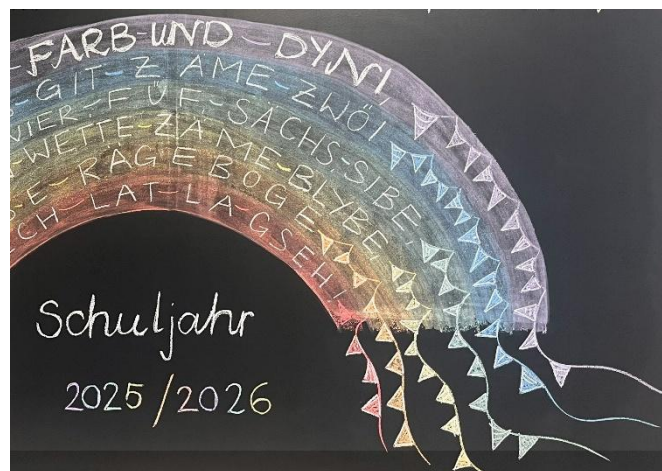 FARB-UND-DYNI,
GIT-ZÄME-ZWÖI
VIER-FÜF-SÄCHS-SIBE,
WETTE-ZÄME-BLYBE,
E-RÄGEBOGE
LAT-LA-GSEH!
Schuljahr
2025/2026